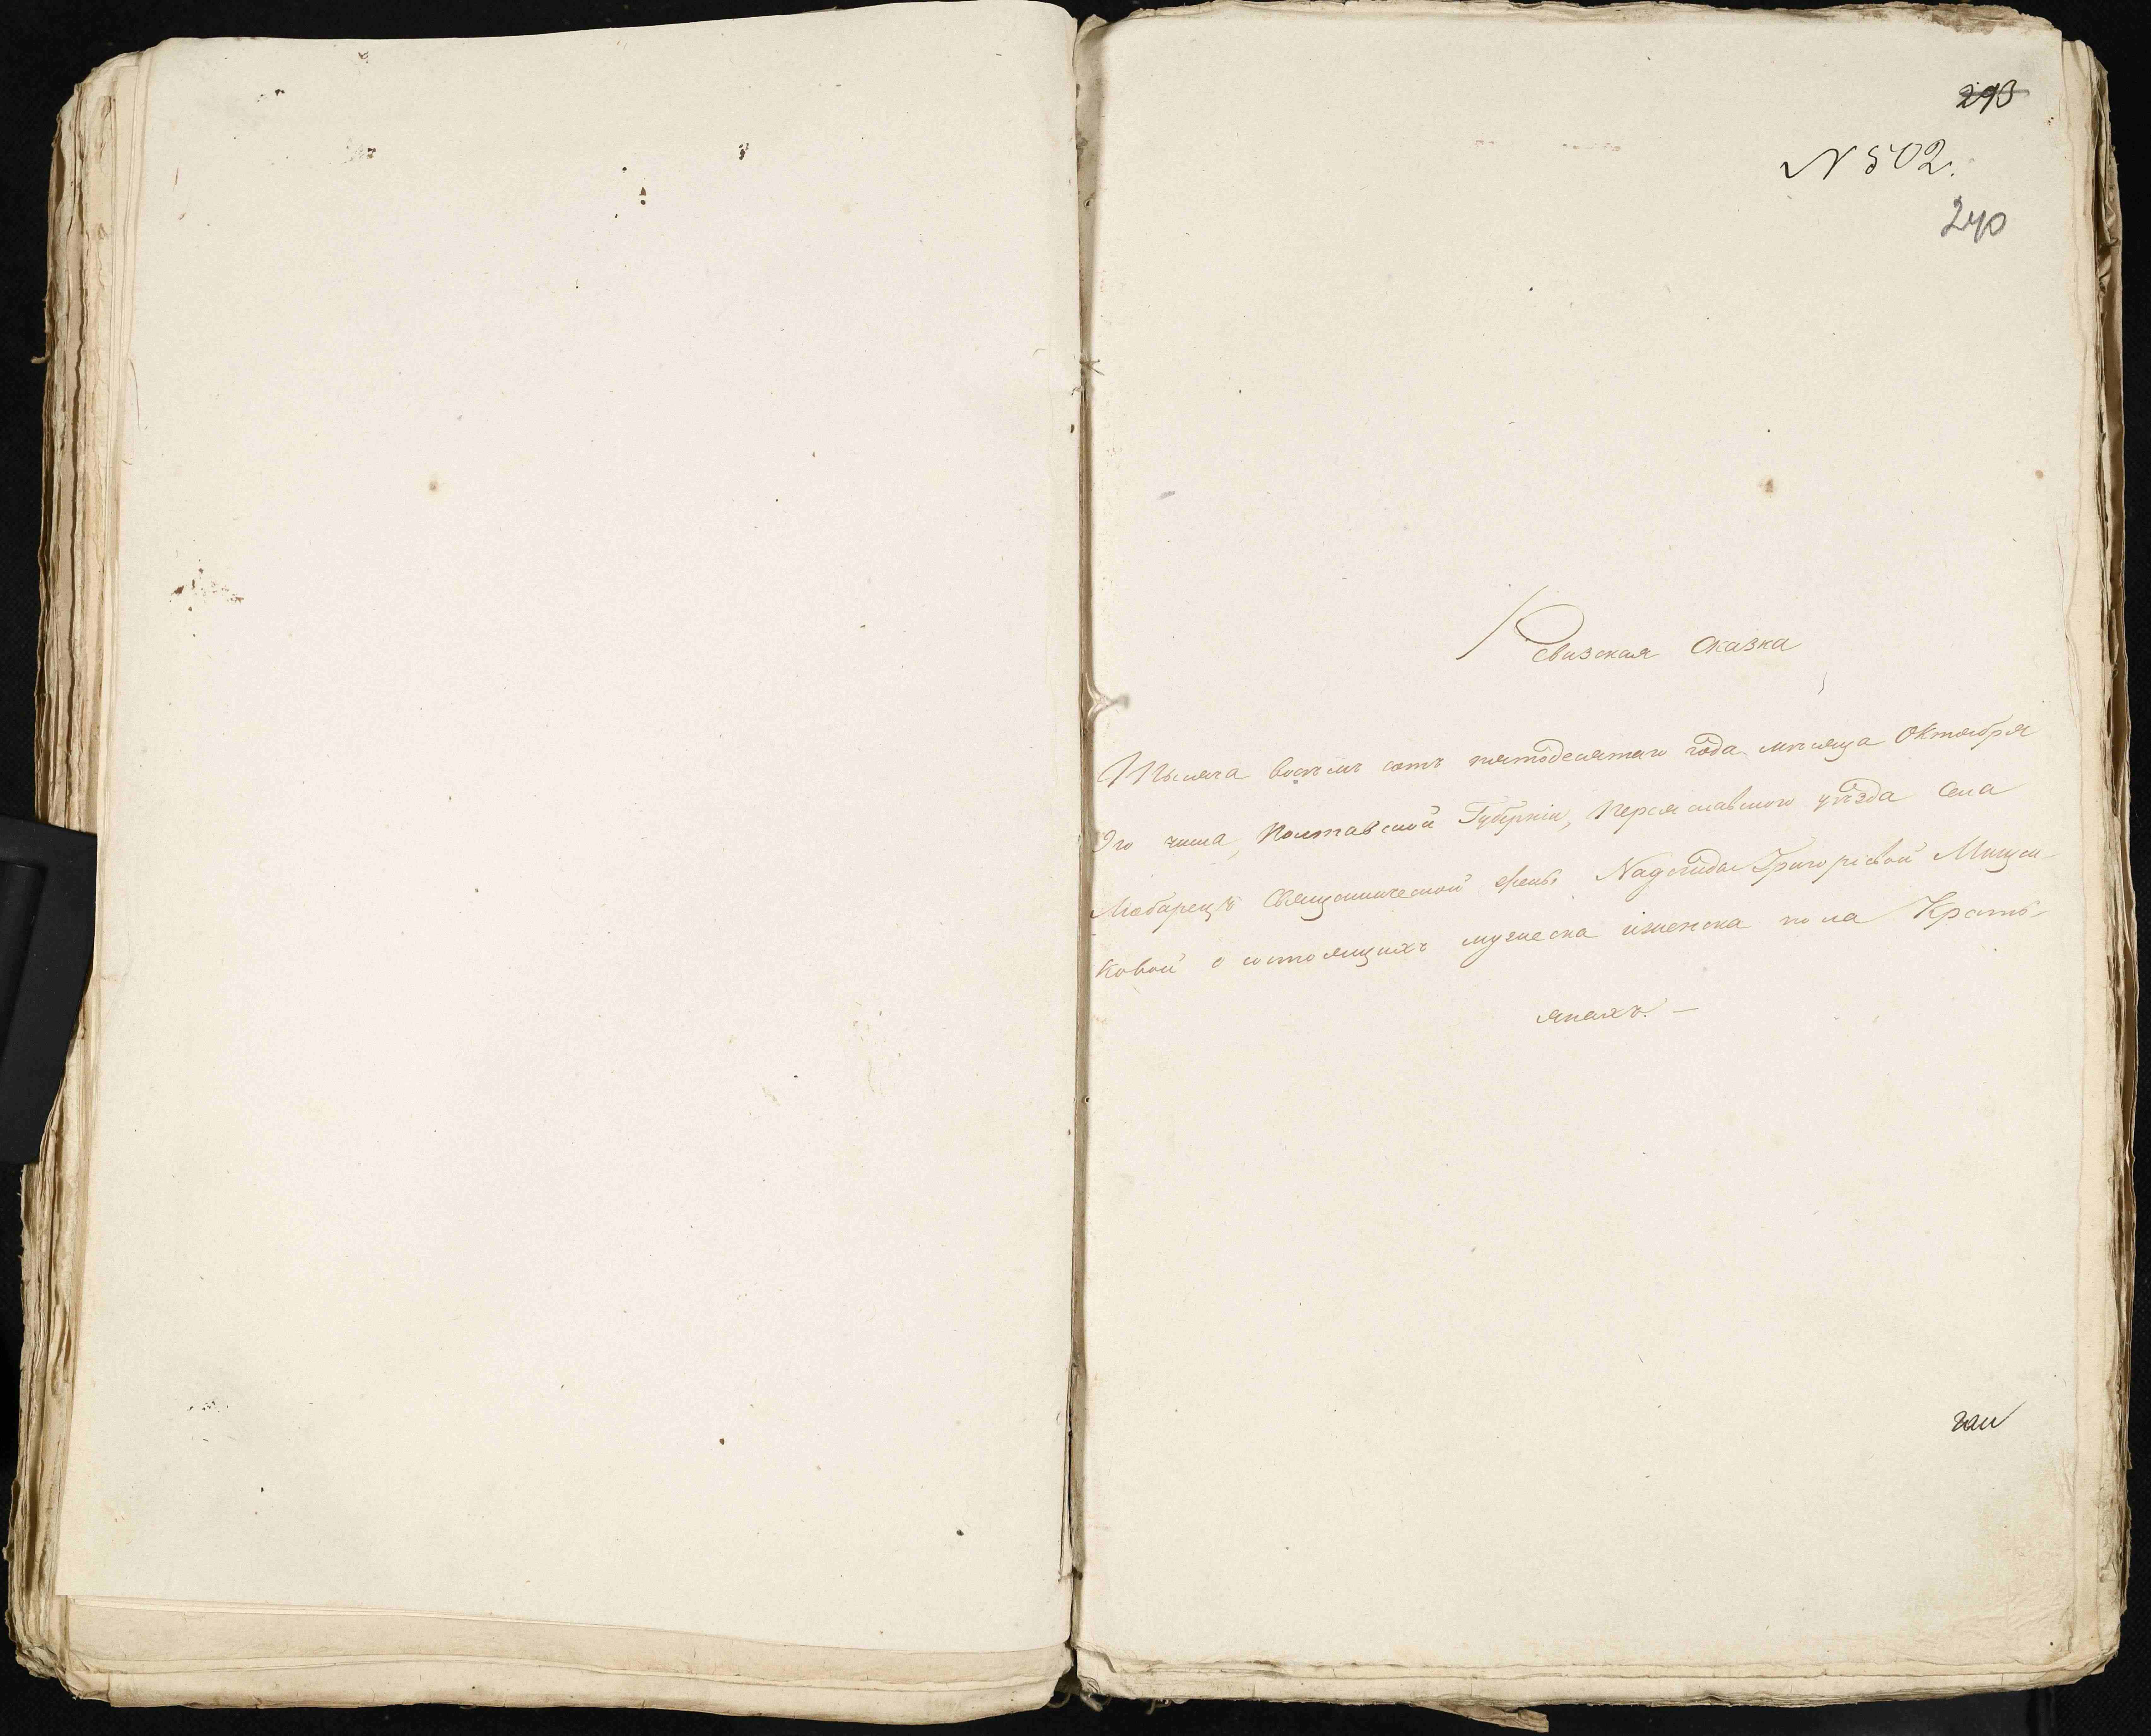 293
N 502.
240
Ревизская Сказка
Тысяча восемь сотъ пятодесятаго года месяца Октября
9го числа, Полтавской Губерніи, Переяславского уѣзда Села
Любарецъ Священнической жены Надежды Григоріевой Мищен-
ковой о состоящихъ мужеска иженска пола Кресть-
янахъ. —